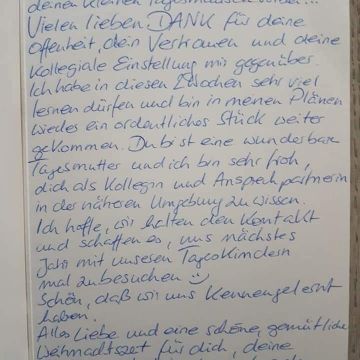 deinen kleinen Tagesmäusen
Vielen lieben DANK für deine
Offenheit, dein Vertrauen und deine
Kollegiale Einstellung mir gegenüber.
Ich habe in diesen 2 Wochen sehr viel
lernen dürfen und bin in meinen Plänen
wieder ein ordentliches Stück weiter
gekommen. Du bist eine wunderbare
Tagesmutter und ich bin sehr froh,
dich als Kollegin und Ansprechpartnerin
in der näheren Umgebung zu wissen.
Ich hoffe, wir halten den Kontakt
und schaffen es, uns nächstes
Jahr mit unseren Tageskindern
mal zu besuchen
Schön, daß wir uns kennengelernt
haben.
Alles Liebe und eine schöne, gemütliche
Weihnachtszeit für dich, deine